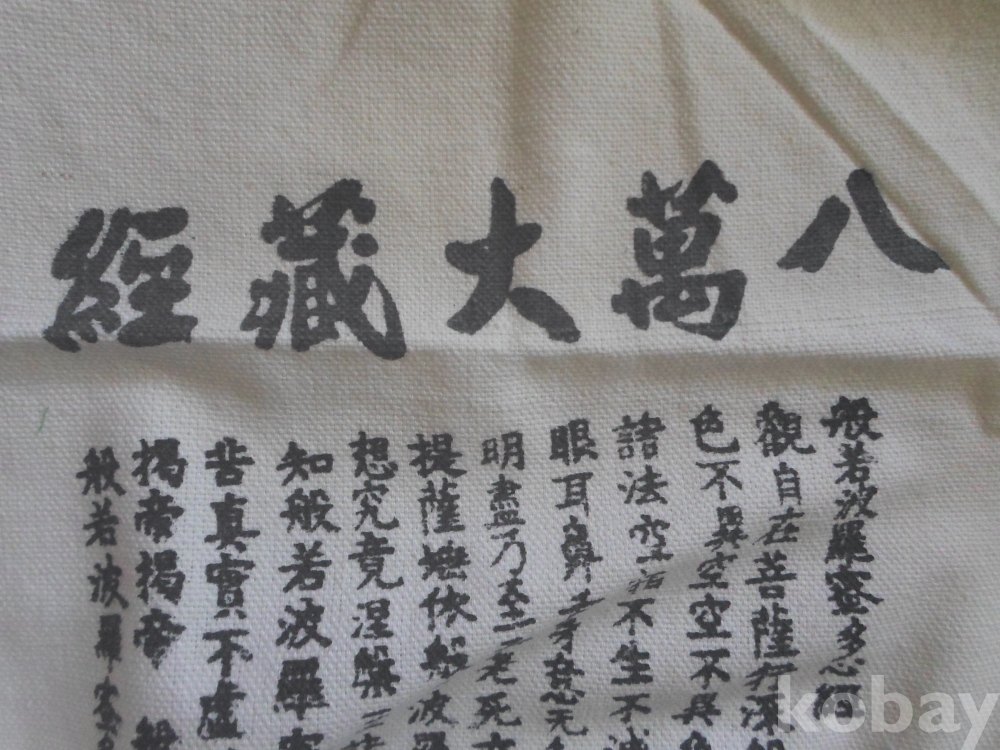 八萬大藏經
般若波羅蜜多心經
觀自在菩薩行深般
色不異空空不異色
諸法空相不生不滅
眼耳鼻舌身意无
明盡乃至无老死亦
提薩埵依般波羅
想究竟涅槃三
知般若波羅蜜
苦真實不虛
揭帝揭帝 般
般若波羅蜜
kobay